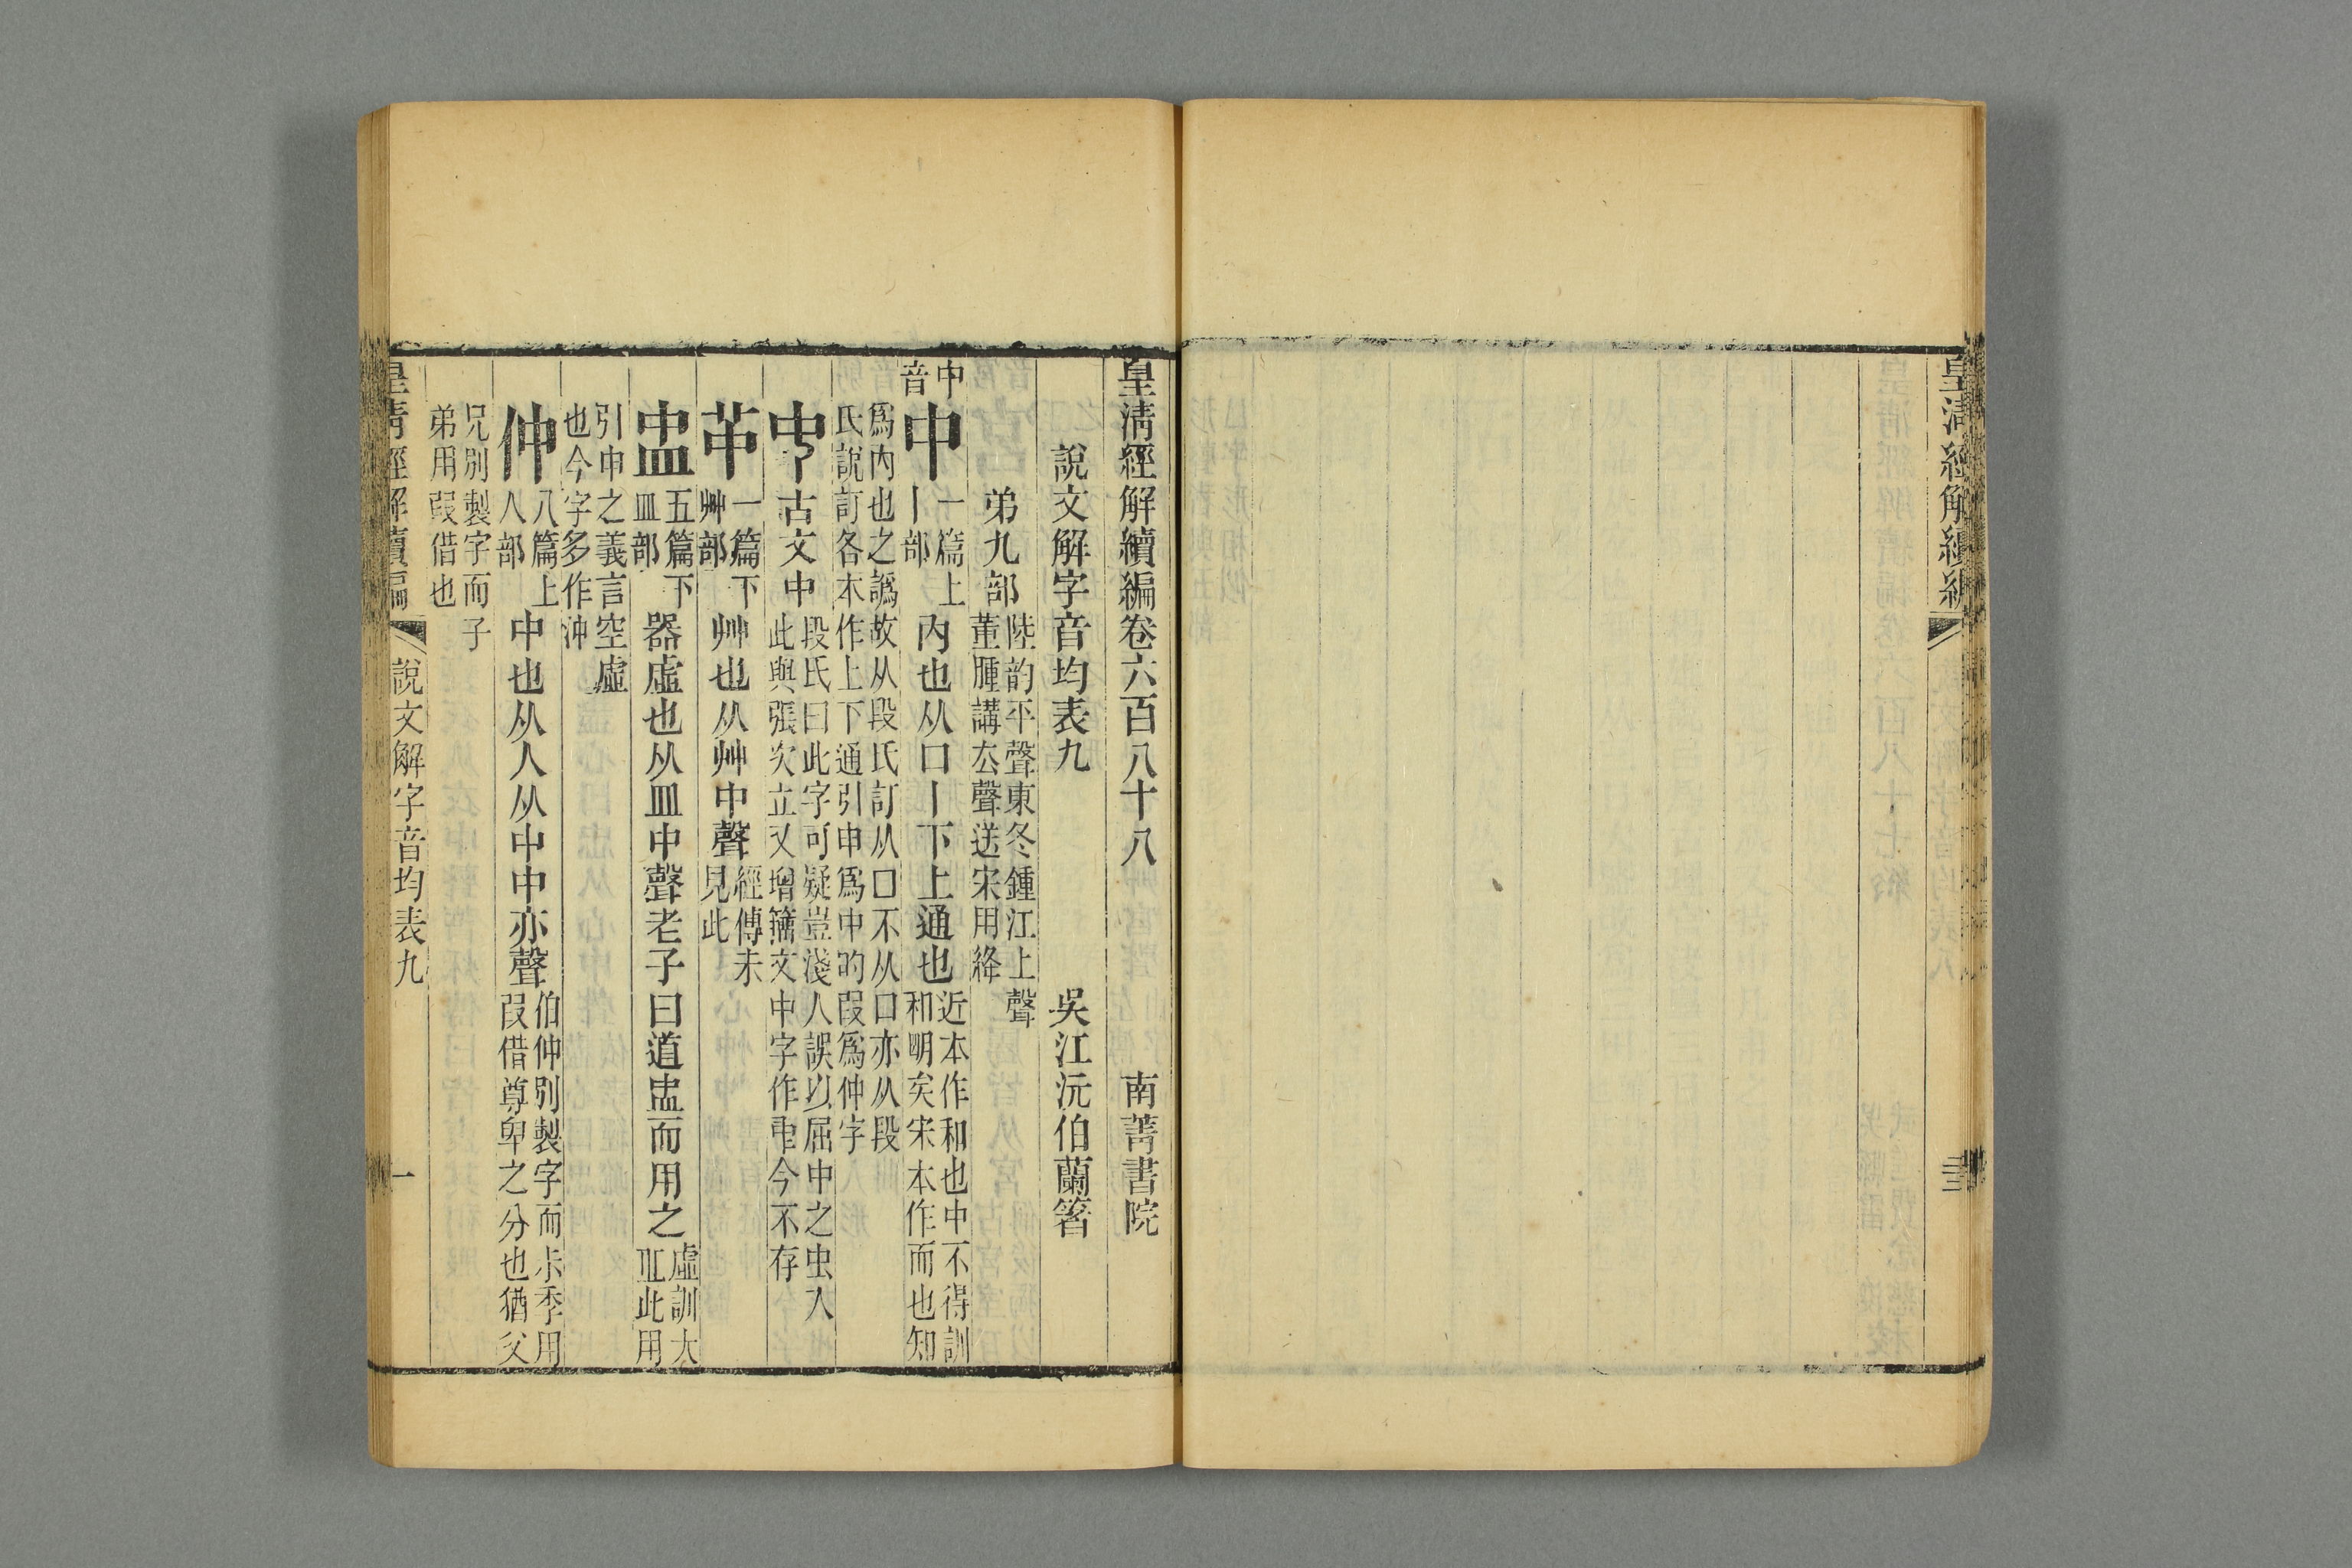 皇清經解續編
皇清經解續編卷六百八十八
南菁書院
說文解字音均表九
吳江沅伯蘭箸
弟九部
陸韵平聲東冬鍾江上聲
董腫講厺聲送宋用絳
中
音
中
一篇上
丨部
內也从口丨下上通也
近本作和也中不得訓
和明矣宋本作而也知
爲內也之譌故从段氏訂从口不从口亦从段
氏說訂各本作上下通引申爲中的叚爲仲字
古文中
段氏曰此字可疑豈淺人誤以屈中之虫入
此與張次立又增籒文中字作𠁧今不存
苹
一篇下
艸部
艸也从艸中聲
經傳未
見此
盅
五篇下
皿部
器虛也从皿中聲老子曰道盅而用之
虛訓大
此用
引申之義言空虛
也今字多作沖
仲
八篇上
人部
中也从人从中中亦聲
伯仲別製字而尗季用
叚借尊卑之分也猶父
兄別製字而子
弟用叚借也
皇清經解續編
說文解字音均表九
一